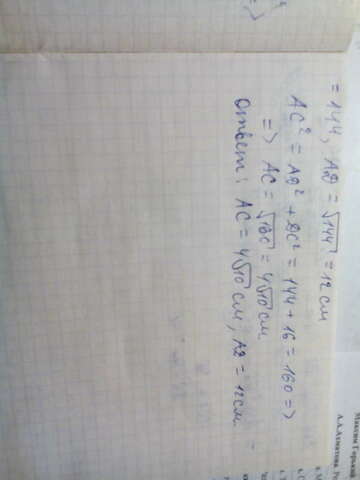 = 144, AD = √144 = 12 см
AC² = AD² + DC² = 144 + 16 = 160 =>
=> AC = √160 = 4√10 см
Ответ: AC = 4√10 см, AD = 12 см.
Максим Горький
А.А.Ахматова. Ре